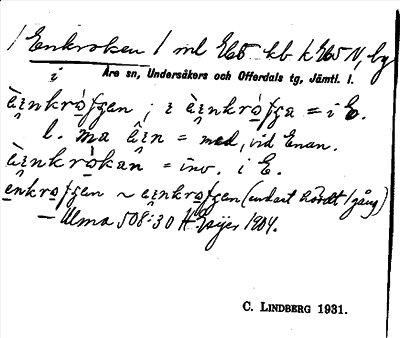 / Enkroken / ml E65 kb k E65 N, by
i Åre sn, Undersåkers och Offerdals tg, Jämtl. l.
èi̯nkrò̱fgen; i èi̯nkrò̱fga = i E.
l. ma ėi̯n = med, vid Enan.
èi̯nkrò̱kan = inv. i E.
e̱nkro̱fgen ~ ei̯nkro̱fgen (endast hördt 1 gång)
— Ulma 508:30 H. Geijer 1904.
C. LINDBERG 1931.